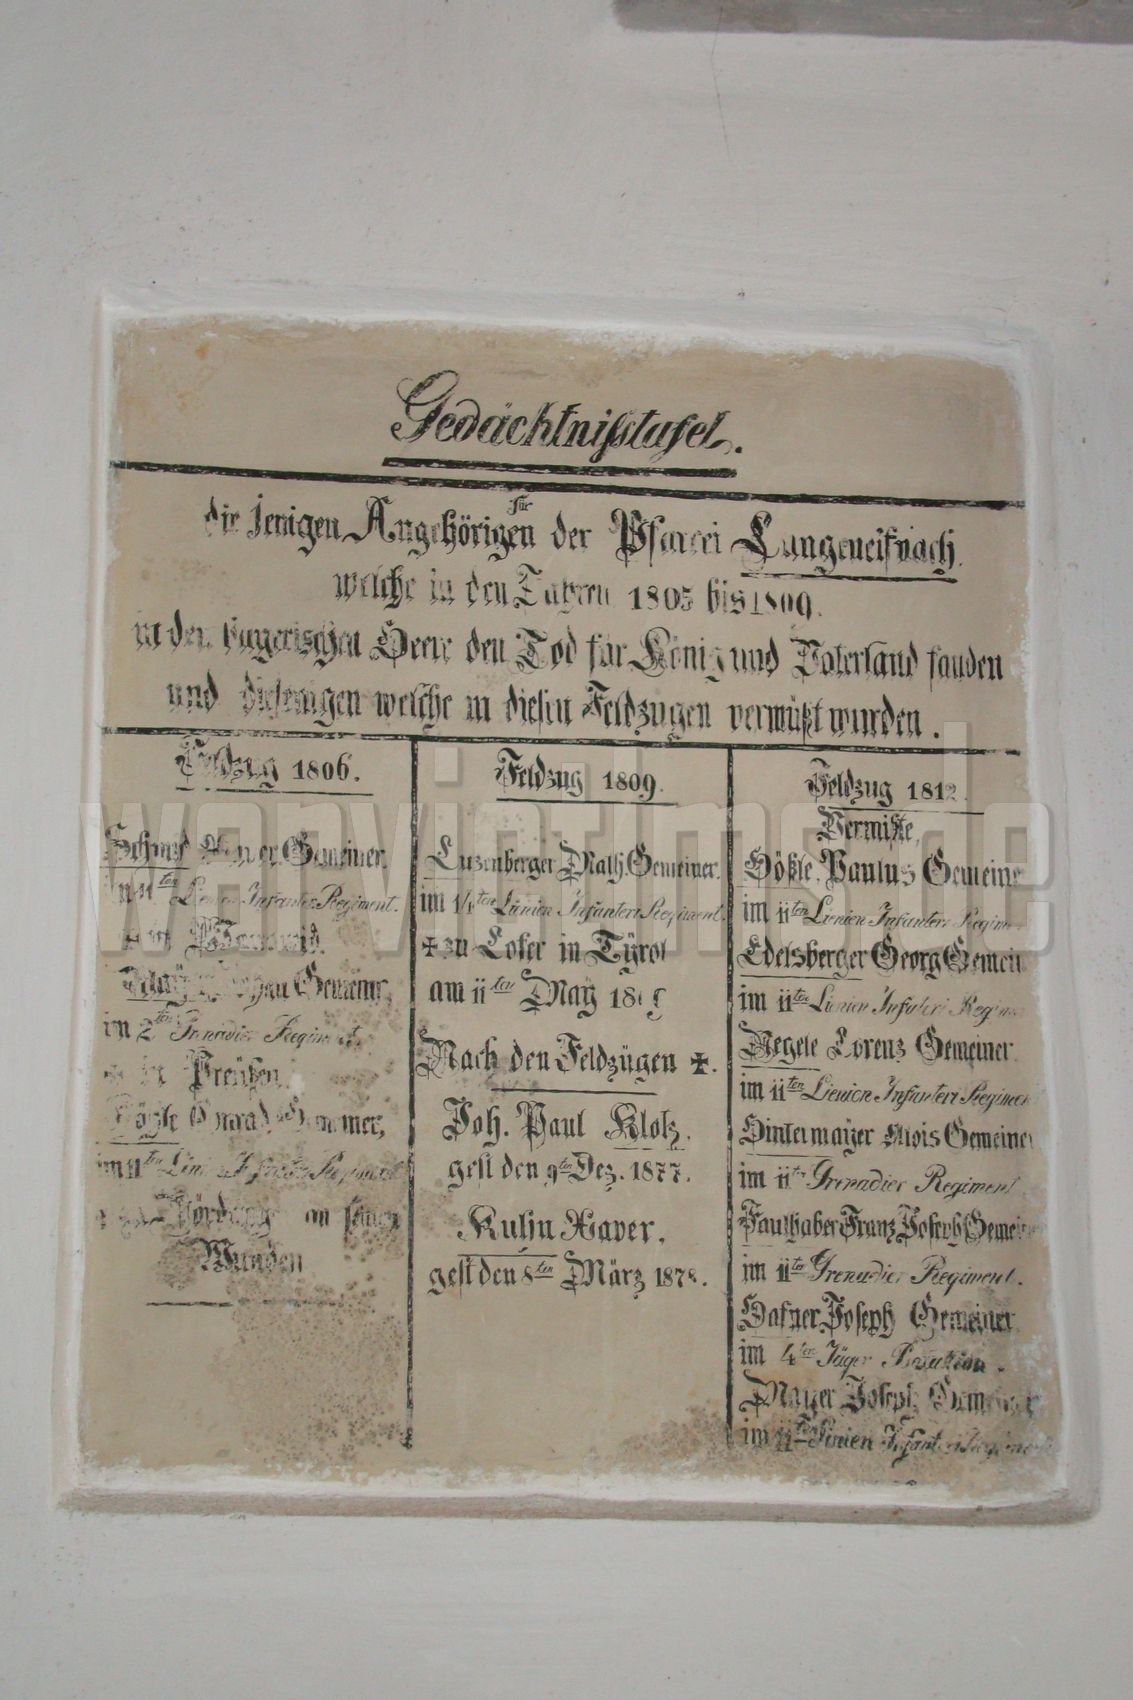 Gedächtnißtafel.
für
die jenigen Angehörigen der Pfarrei Langeneifnach.
welche in den Jahren 1805 bis 1809.
in der bayerischen Heere den Tod für König und Vaterland fanden
und diejenigen welche in diesen Feldzügen vermüßt wurden.
Feldzug 1806.
Gemeiner.
Linien Infanter Regiment.
Gemeiner,
im 2ten Grenadier Regiment
in Preüßen.
Gemeiner,
im 11ten Linien Infanter Regiment
an seinen
Wunden
Feldzug 1809.
Luzenberger Math. Gemeiner.
im 14ten Linien Infanteri Regiment.
✠ zu Lofer in Tÿrol
am 11ten Maÿ 1809
Nach den Feldzügen ✠.
Joh. Paul Klotz.
gest den 9ten Dez. 1877.
Kuhn Xaver.
gest den 8ten März 1878.
Feldzug 1812.
Vermißte,
Hößle Paulus Gemeine
im 11ten Lienien Infanteri Regim
Edelsberger Georg Gemein
im 11ten Lienien Infateri Regim
Wegele Lorenz Gemeiner.
im 11ten Lienien Infanteri Regimen
Hintermayer Alois Gemeiner
im 11ten Grenadier Regiment
Faulhaber Franz Joseph Gemeine
im 11ten Grenadier Regiment.
Hafner Joseph Gemeiner
im 4ten Jäger Batalion.
Mayer Joseph Gemeiner
im 11ten Linien Infanteri Regime
www.weltkriegsopfer.de